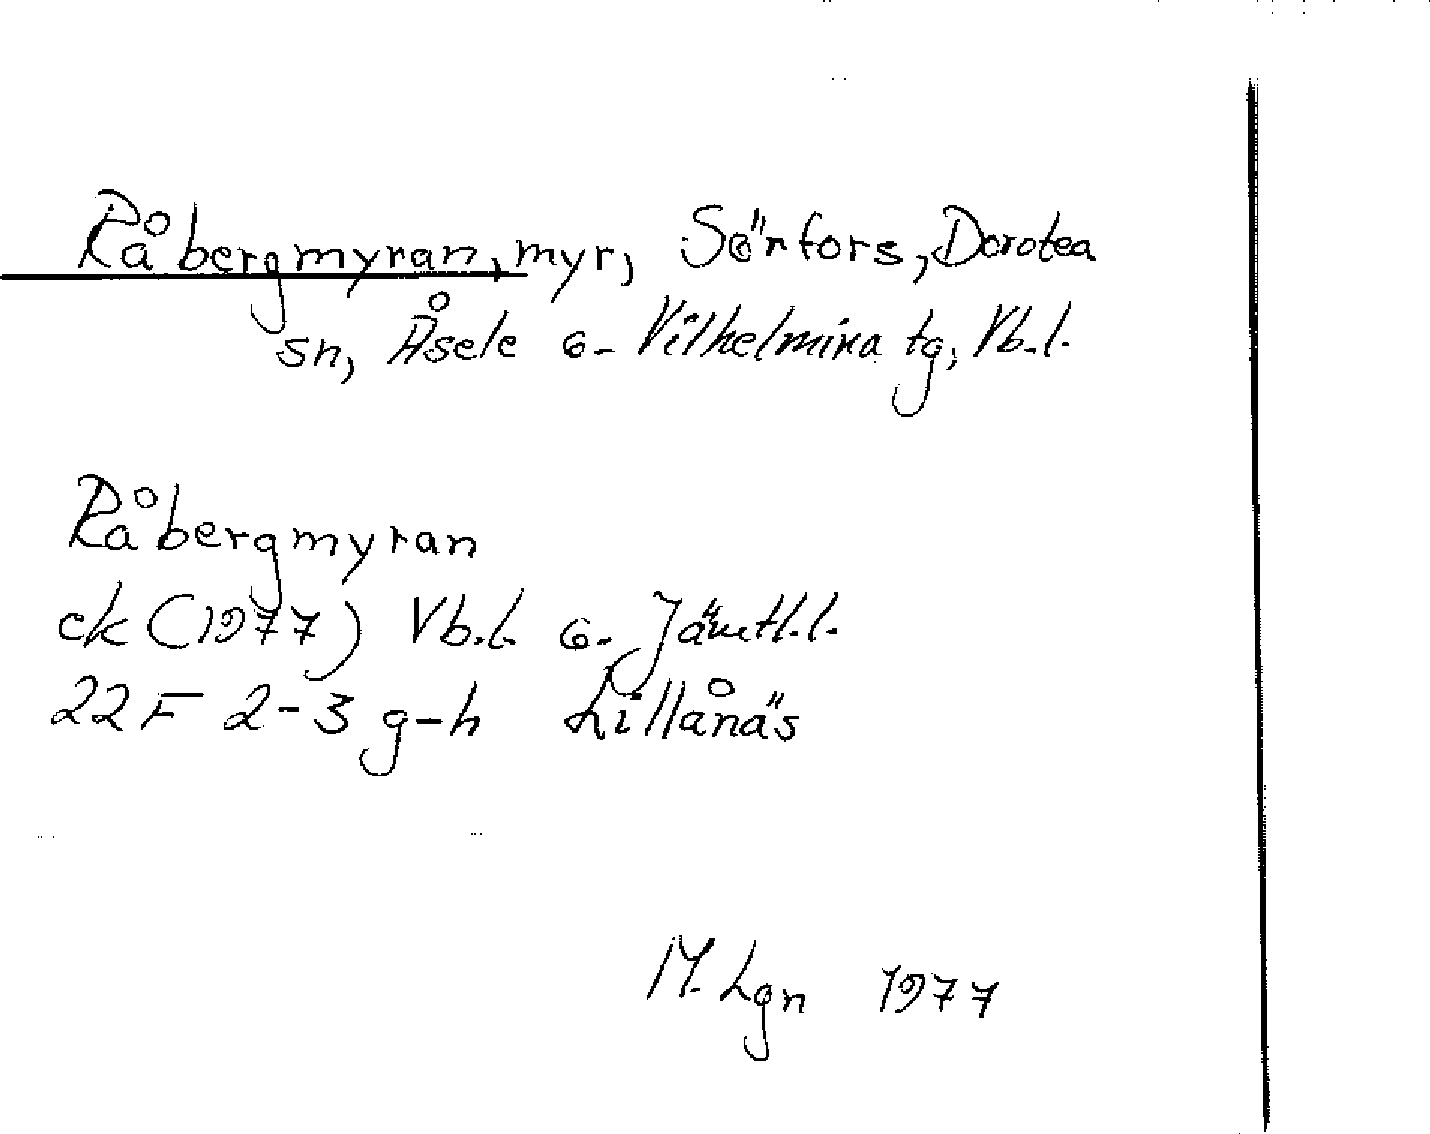 Råbergmyran, myr, Sörfors, Dorotea
sn, Åsele o. Vilhelmina tg, Vb.l.
Råbergmyran
ek (1977) Vb.l. o. Jämtl.l.
22 F 2-3 g-h Lillånäs
M. Lgn 1977